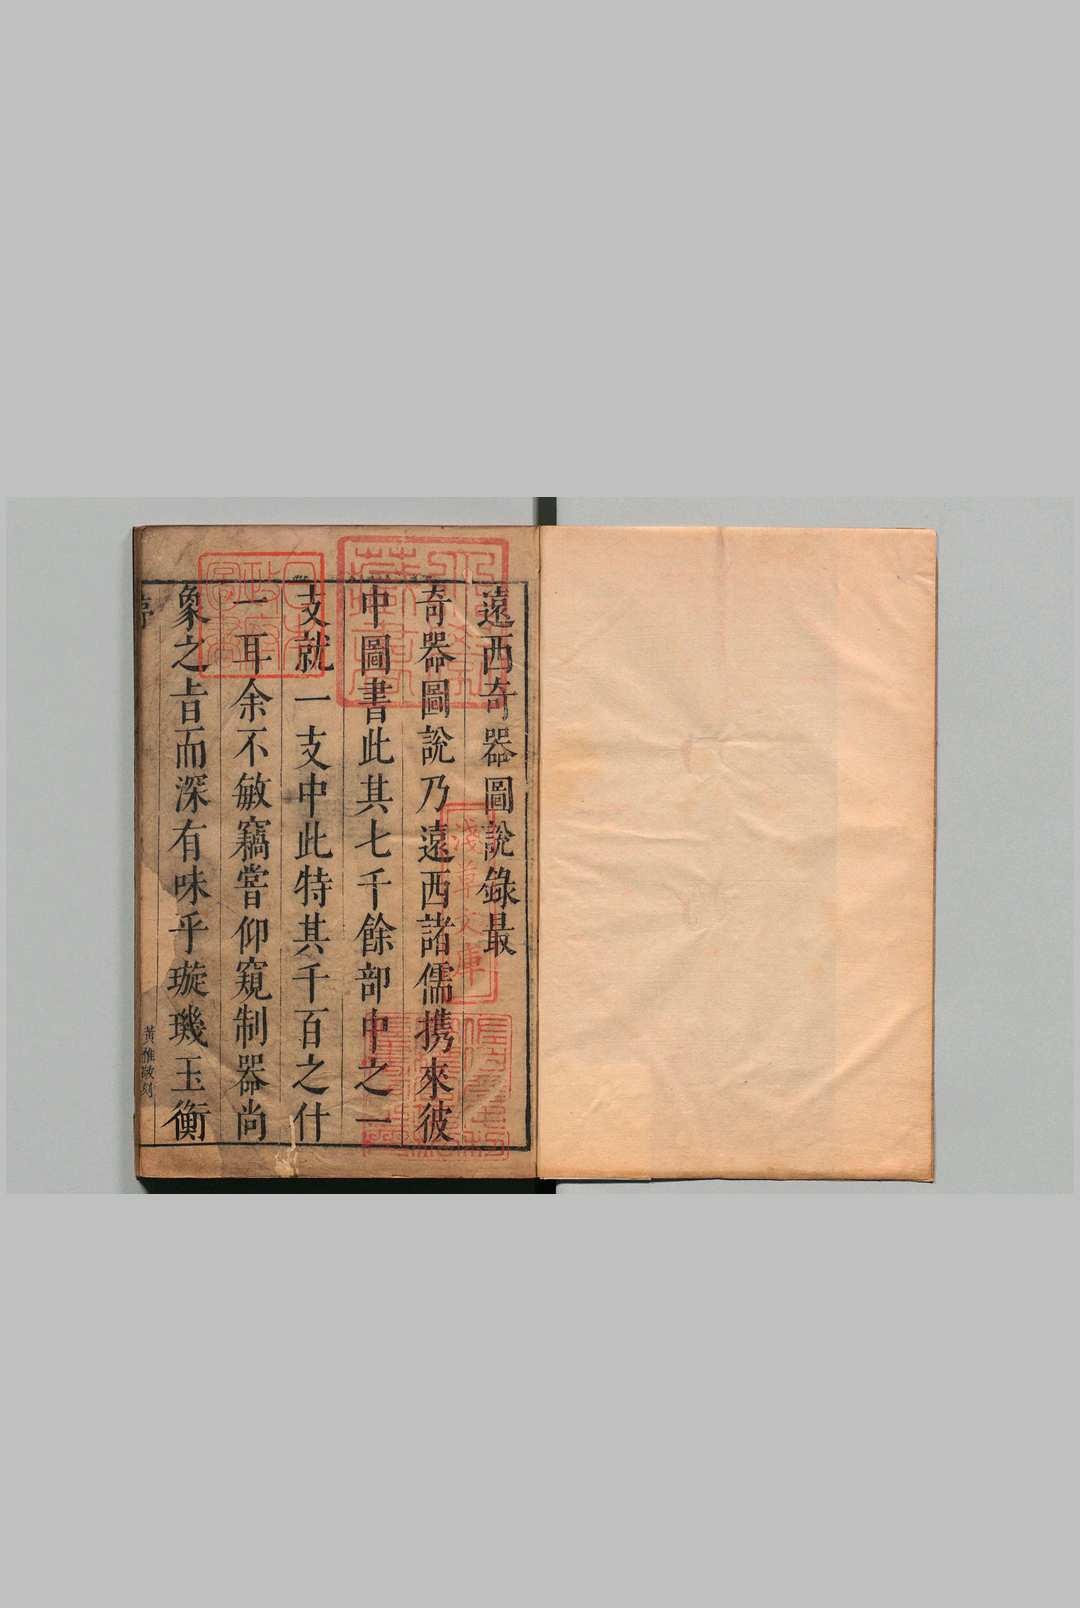 遠西奇器圖說錄最
奇器圖說乃遠西諸儒携來彼
中圖書此其七千餘部中之一
支就一支中此特其千百之什
一耳余不敏竊嘗仰窺制器尚
象之旨而深有味乎璇璣玉衡
黃惟敬刻
淺草文庫
日本政府圖書